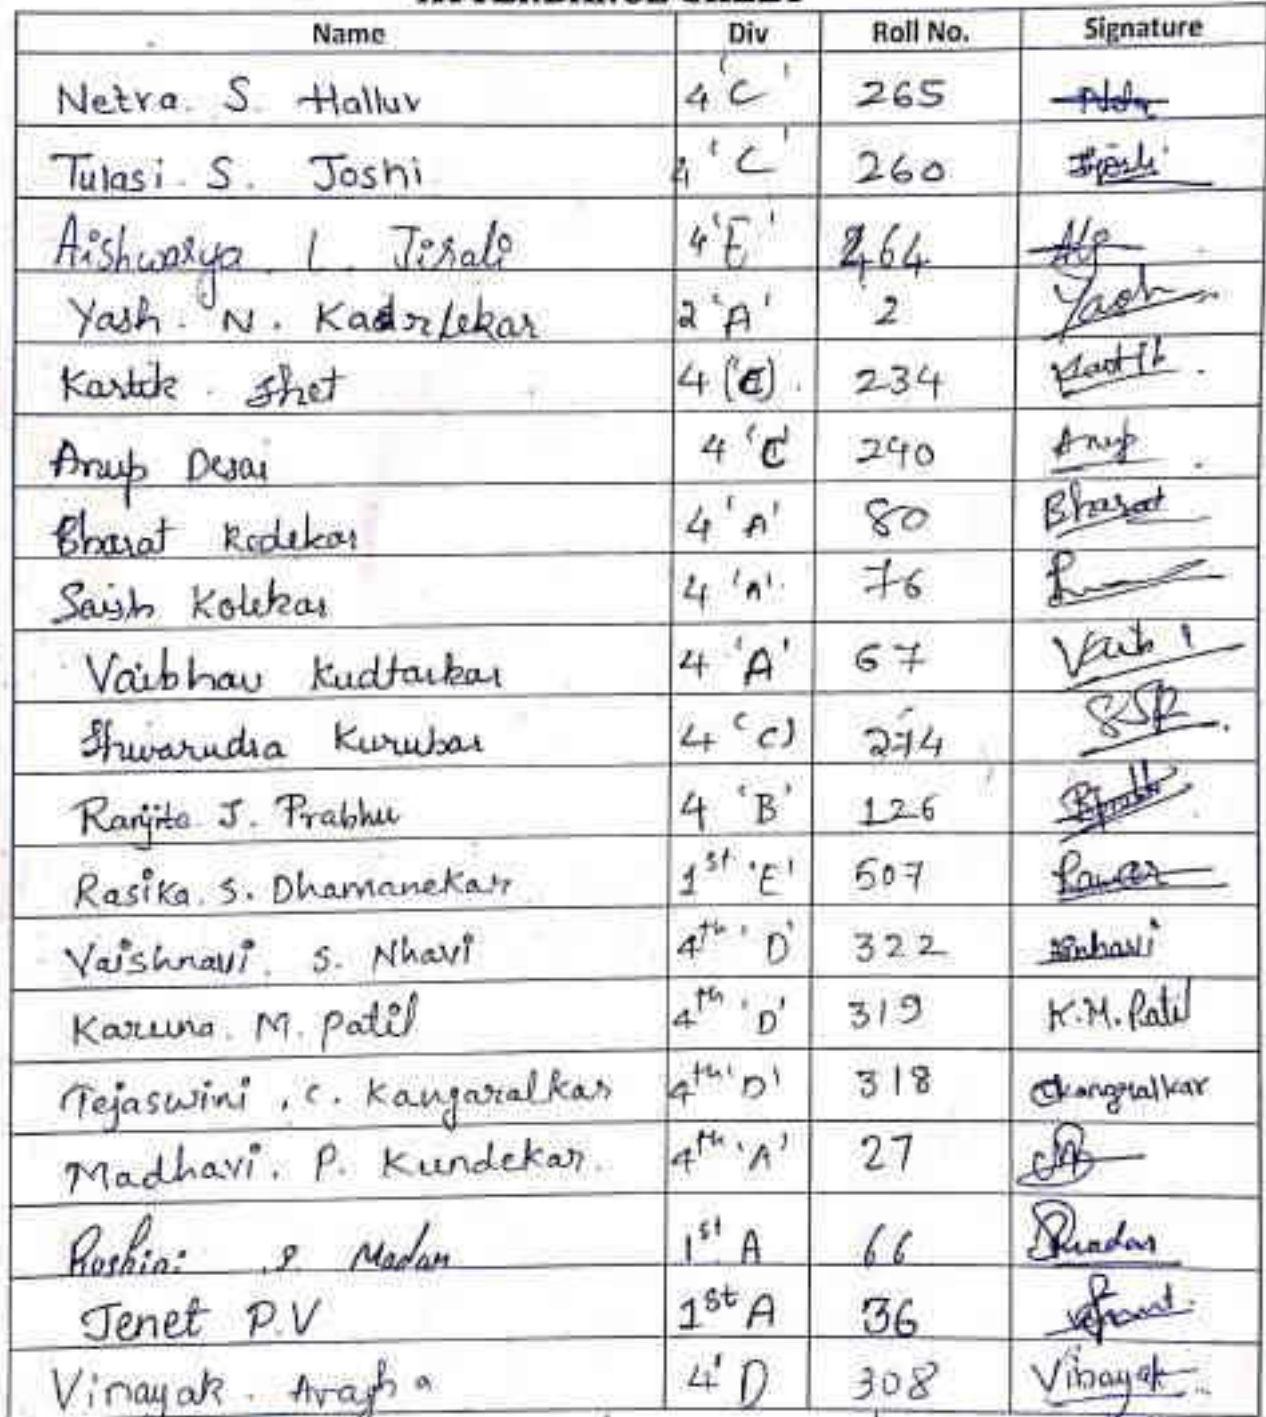 ATTENDANCE SHEET
Name Div Roll No. Signature
Netra. S. Halluv 4 'C' 265
Tulasi. S. Joshi 4 'C' 260 Joshi
Aishwarya. L. Jirali 4 'E' 264
Yash. N. Kadrlekar 2 'A' 2 Yash
Kartik. Shet 4 (C) 234 Kartik.
Anup Desai 4 'C' 240 Anup
Bharat Kodekar 4 'A' 80 Bharat
Saish Kolekar 4 'A' 76
Vaibhav Kudtarkar 4 'A' 67 Vaib
Shivarudra Kurubar 4 'C' 274 SSK
Ranjita J. Prabhu 4 'B' 126
Rasika. S. Dhamanekar 1st 'E' 507
Vaishnavi. S. Nhavi 4th 'D' 322
Karuna. M. Patil 4th 'D' 319 K.M. Patil
Tejaswini. C. Kangaralkar 4th 'D' 318 Ckangralkar
Madhavi. P. Kundekar. 4th 'A' 27
Roshini S. Madan 1st A 66
Jenet P.V 1st A 36
Vinayak. 4' D 308 Vinayak